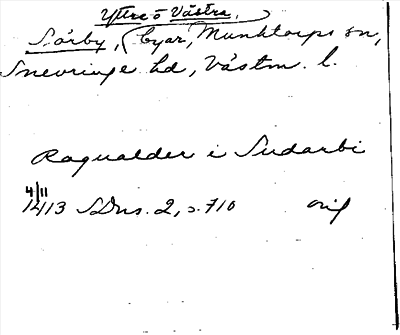 Yttre o Västra.
Sörby, (byar, Munktorps sn,
Snevringe hd, Västm. l.
Ragualder i Sudarbi
4/11
1413 SDns. 2, s. 710 orig